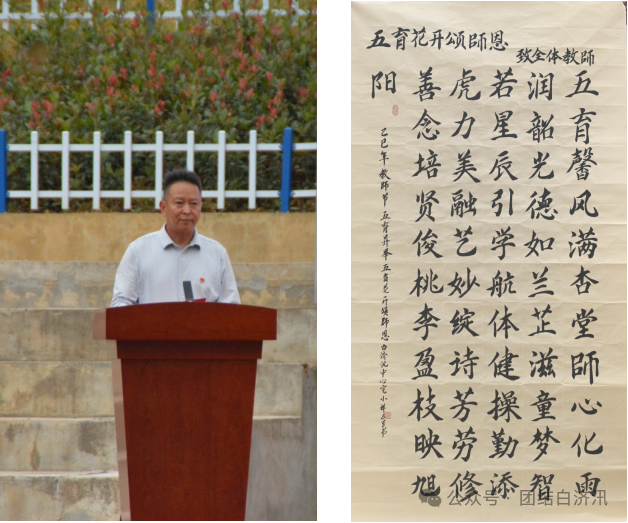 五育花开颂師恩
致全体教師
五育馨风满杏堂師心化雨
润韶光德如兰芷滋童梦智
若星辰引学航体健操勤添
虎力美融艺妙绽诗芳劳修
善念培贤俊桃李盈枝映旭
阳
乙巳年教師节五育并举五育花开颂師恩白济汛中心完小
公众号 · 团结白济汛